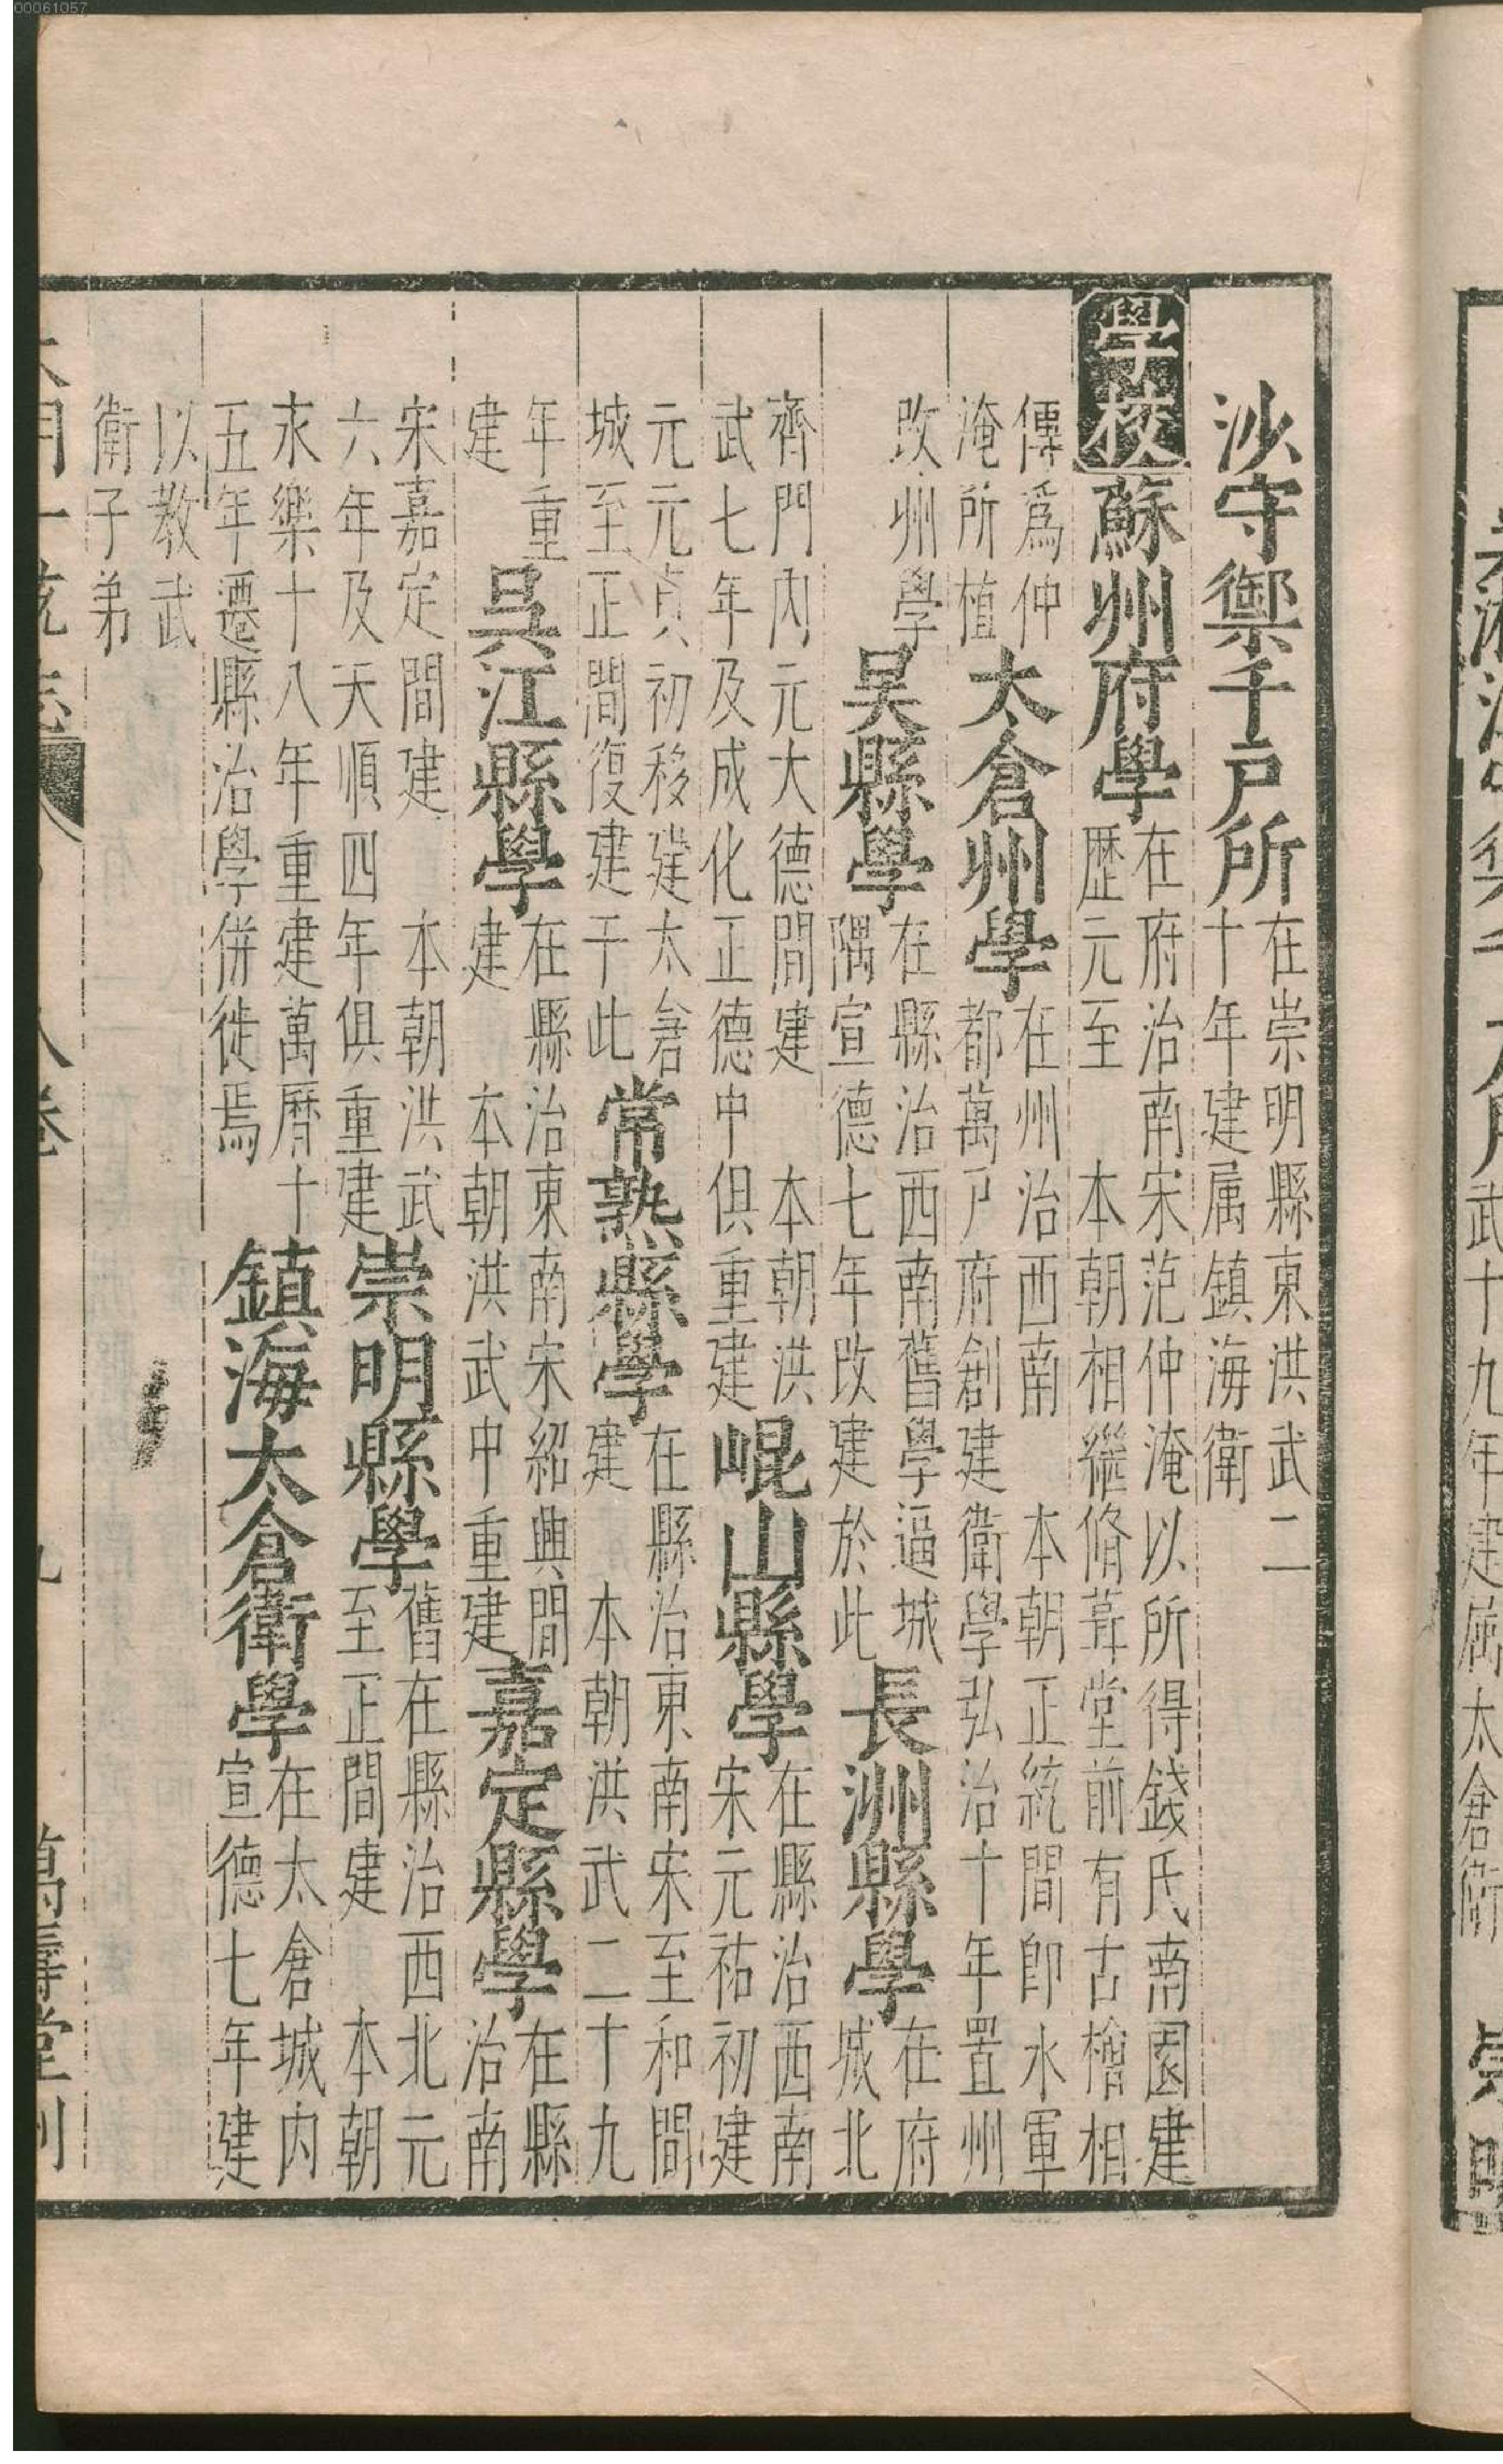 00061057
武十九年建属太倉衛
沙守禦千戶所在崇明縣東洪武二十年建属鎮海衛
學校蘇州府學在府治南宋范仲淹以所得錢氏南園建歷元至 本朝相繼脩葺堂前有古檜相
傳爲仲淹所植太倉州學在州治西南 本朝正統間卽水軍都萬戶府創建衛學弘治十年置州
改州學吳縣學在縣治西南舊學逼城隅宣德七年改建於此長洲縣學在府城北
齊門内元大德間建 本朝洪武七年及成化正德中俱重建崐山縣學在縣治西南宋元祐初建
元元貞初移建太倉城至正間復建于此常熟縣學在縣治東南宋至和間建 本朝洪武二十九
年重建吳江縣學在縣治東南宋紹興間建 本朝洪武中重建嘉定縣學在縣治南
宋嘉定間建 本朝洪武六年及天順四年俱重建崇明縣學舊在縣治西北元至正間建 本朝
永樂十八年重建萬曆十五年遷縣治學併徙焉鎮海太倉衛學在太倉城内宣德七年建
以教武衛子弟
大明一統志 八卷 九 萬壽堂刋